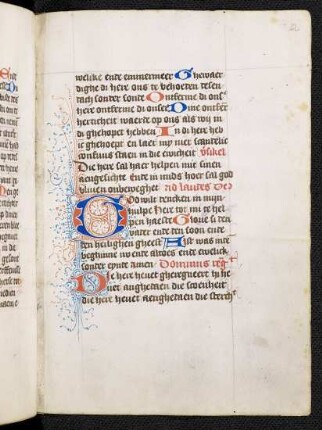 welike ende emmermeer Ghewaer
dighe di here ons te behoeden desen
dach sonder sonde Ontferme di ons
here ontferme di onser Dine ontfer
herticheit waerde op ons als wi in
di ghehopet hebben In di here heb
ic ghehoept en laet mi niet scantelic
confuus staen in die ewicheit
Die here sal haer helpen mit sinen
aengesichte ende in midts hoer sal god
bliuen onbeweghet Ad laudes Ver
God wilt dencken in mijn
hulpe Here tot mi te hel
pen haeste Glorie si den
vader ende den soon ende
den heilighen gheest Als was inde
beghinne nu ende altoes ende ewelick
sonder eynde amen Dominus reg
Die here heuet gheregneert hi he
uet aenghedaen die scoenheit
die here heuet aenghedaen die sterch